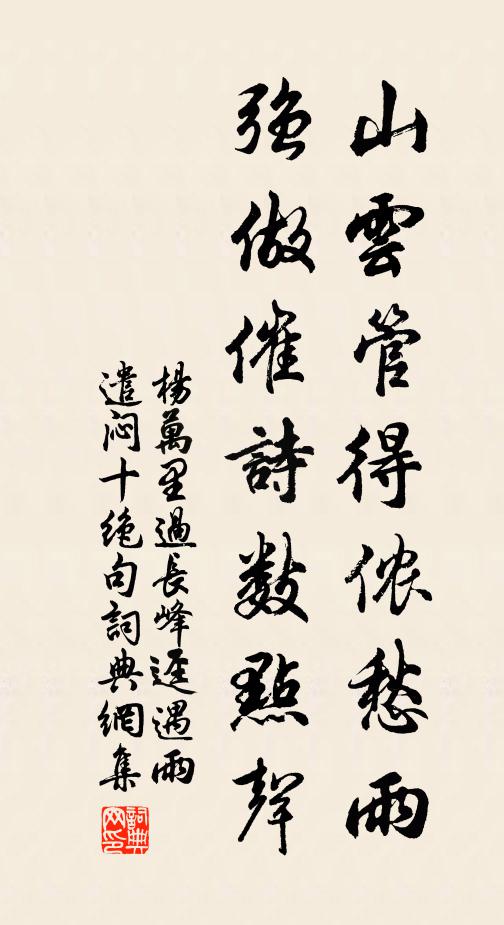 山雲管得侬愁雨
強做催詩數點聲
楊萬里過長峰遥遇雨
遣闷十绝句詞典網集
詞典网印